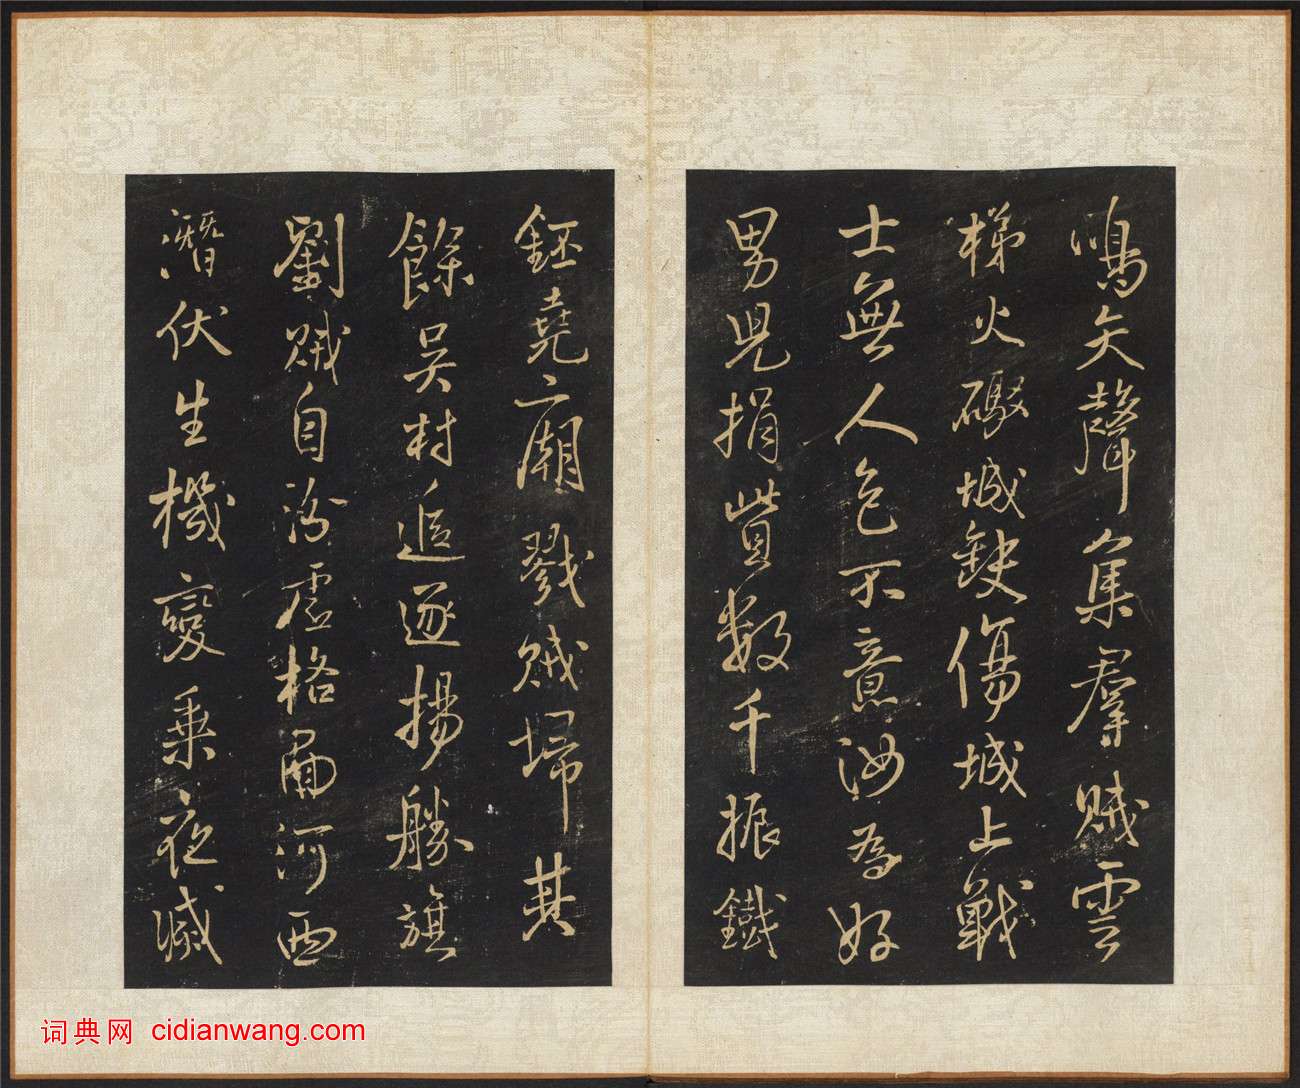 鳴矢聲集群賊雲
梯火礮城缺傷城上戰
士無人色不意汝為好
男兒捐貲數千振鐵
鉦堯廟戮賊埽其
餘吳村追逐揚勝旗
劉賊自汾虛格鬭河西
潛伏生機變乘夜滅
词典网 cidianwang.com